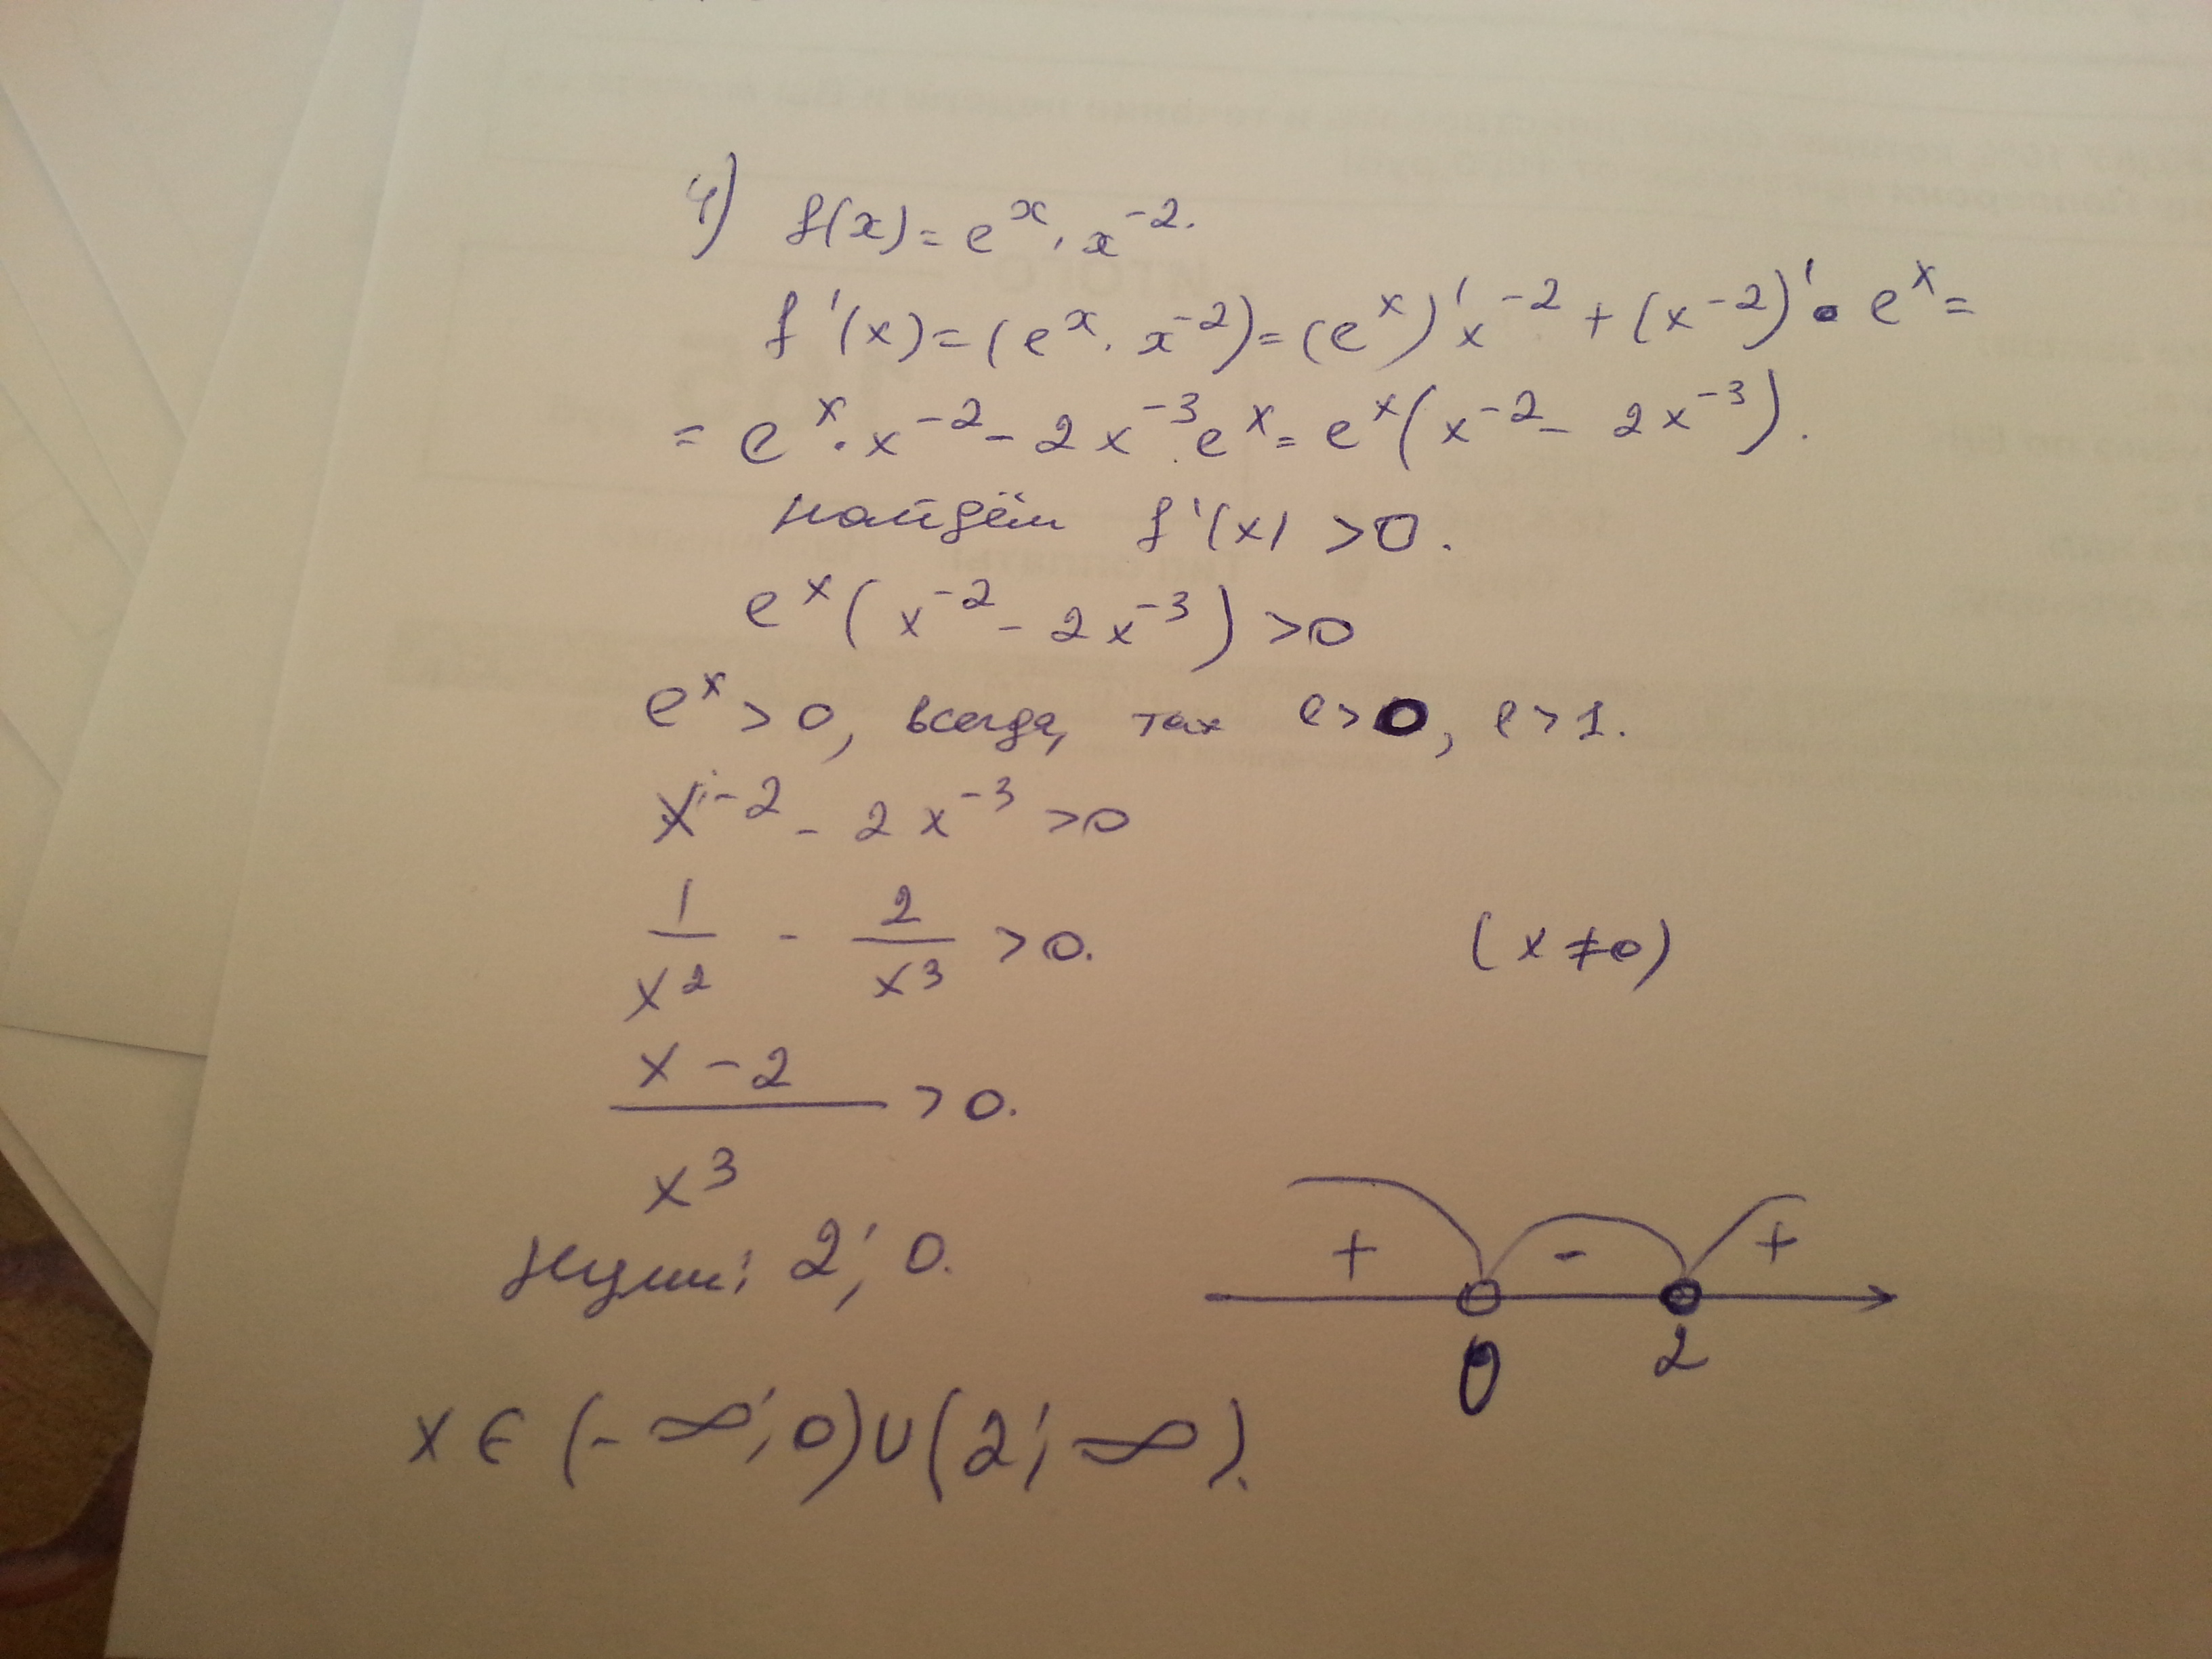 4) f(x) = e^x · x^-2.
f'(x) = (e^x · x^-2) = (e^x)' x^-2 + (x^-2)' · e^x =
= e^x · x^-2 - 2x^-3 e^x = e^x (x^-2 - 2x^-3).
найдём f'(x) > 0.
e^x (x^-2 - 2x^-3) > 0
e^x > 0, всегда, так e > 0, e > 1.
x^-2 - 2x^-3 > 0
1/x^2 - 2/x^3 > 0. (x ≠ 0)
(x - 2)/x^3 > 0.
+ - +
Нули: 2; 0.
0 2
x ∈ (-∞; 0) ∪ (2; ∞).